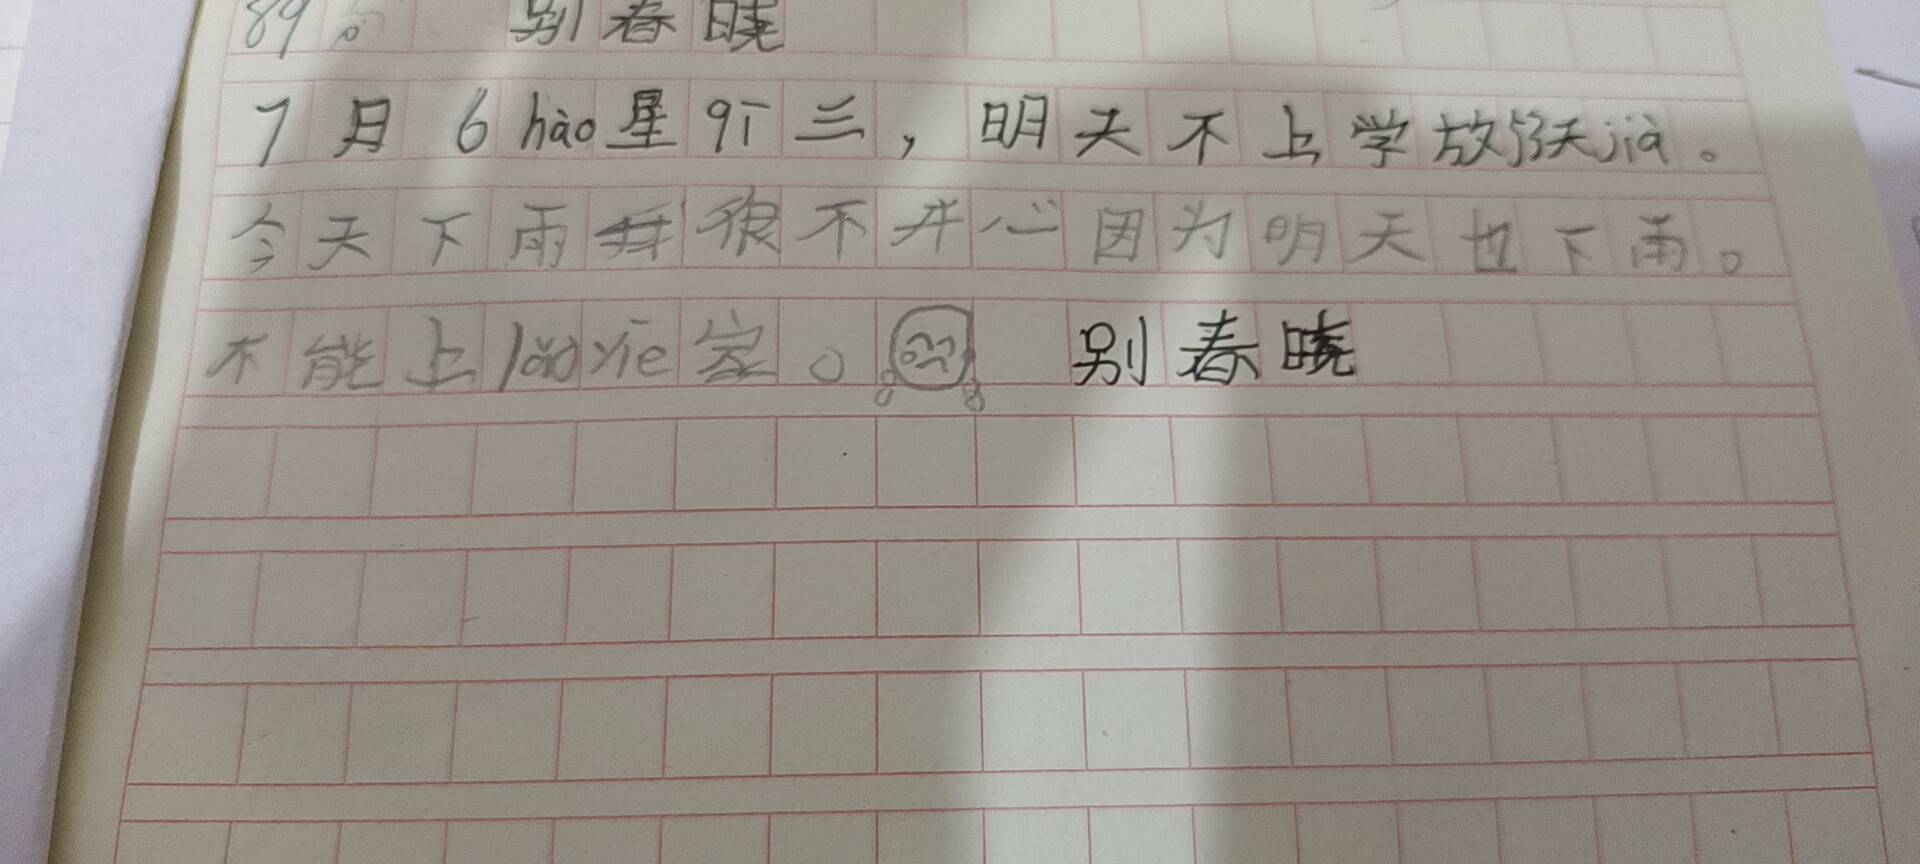 89 别春晓
7月6hào星qī三，明天不上学放jià。
今天下雨很不开心因为明天也下雨。
不能上lǎoyie家。别春晓